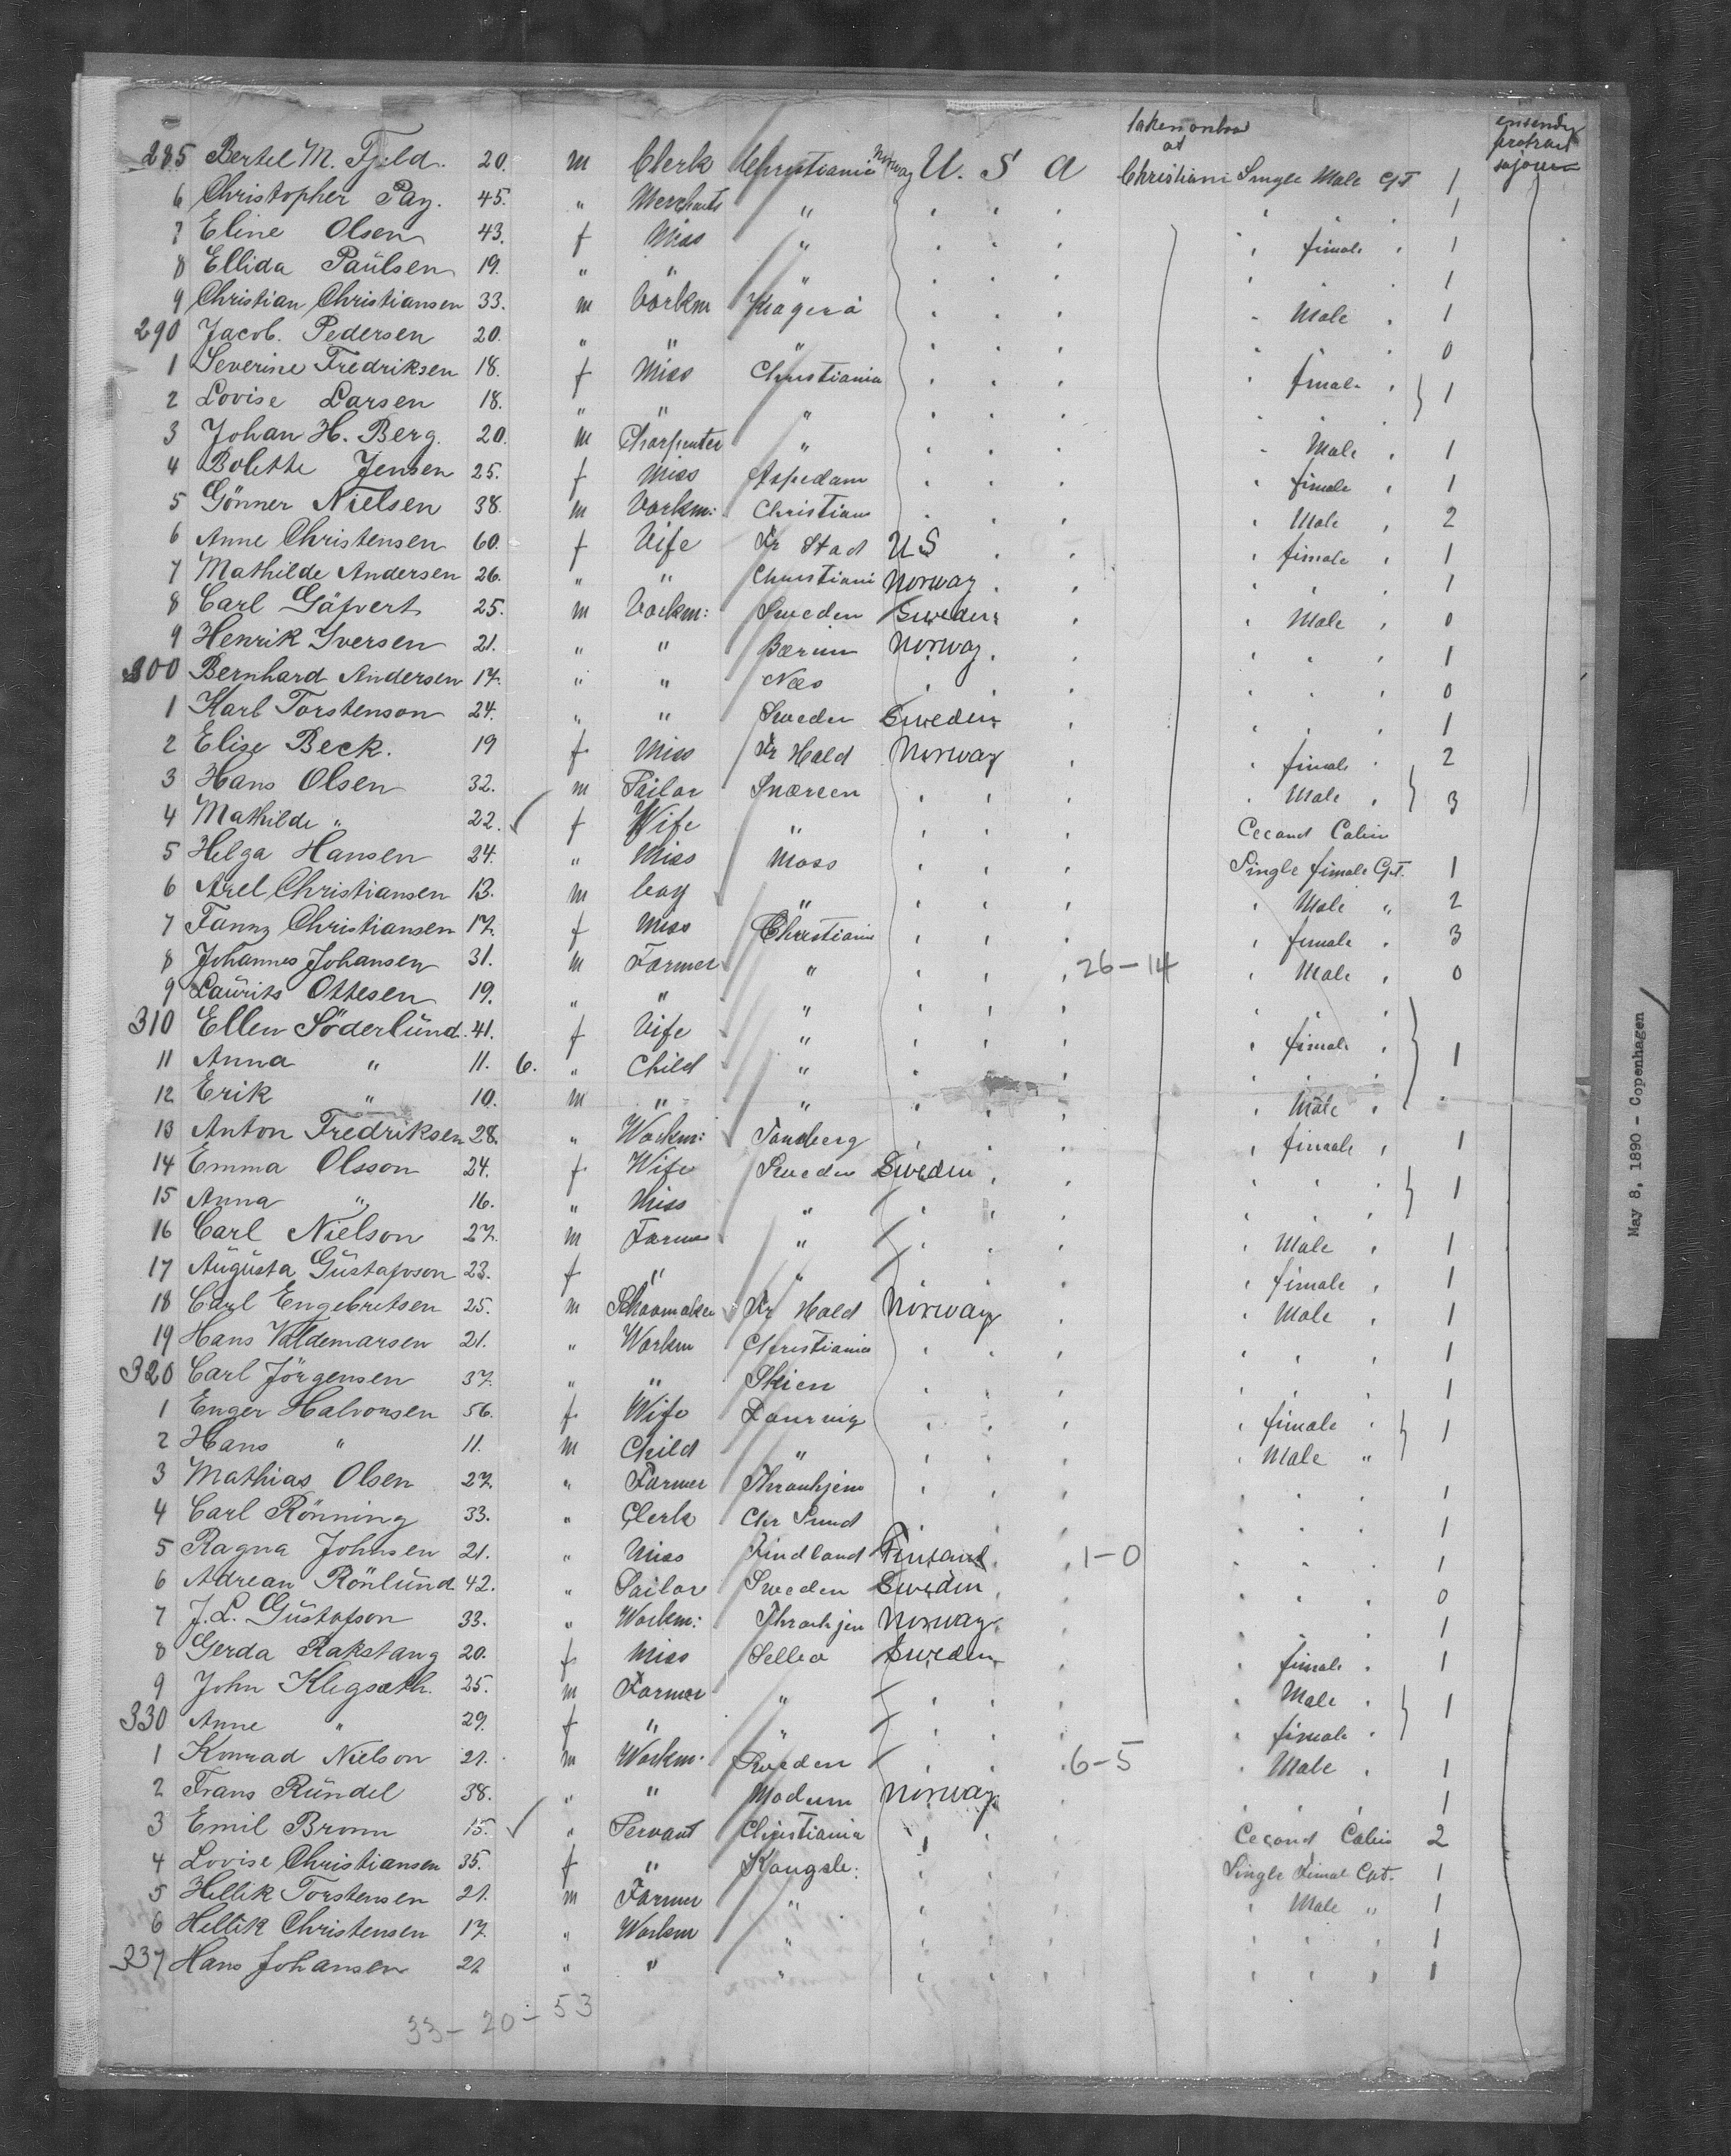 taken onboard at
285 Bertel M. Fjeld. 20. m Clerk Christiania Norway U. S A Christiani Single Male Cpt 1
6 Christopher Pay. 45. " Merchants " 1
7 Eline Olsen 43. f Miss " female 1
8 Ellida Paulsen 19. " " " 1
9 Christian Christiansen 33. m Vorkm Kragerö Male 1
290 Jacob. Pedersen 20. " " " 0
1 Severine Fredriksen 18. f Miss Christiania female } 1
2 Lovise Larsen 18. " " "
3 Johan H. Berg. 20. m Charpenter " Male 1
4 Bolette Jensen 25. f Miss Aspedam female 1
5 Gönner Nielsen 38. m Vorkm: Christian Male 2
6 Anne Christensen 60. f Vife Fr Stad US female 1
7 Mathilde Andersen 26. " " Christiani Norway 1
8 Carl Gäfvert 25. m Vorkm: Sweden Sweden Male 0
9 Henrik Iversen 21. " " Bærum Norway 1
300 Bernhard Andersen 17. " " Næs 0
1 Karl Torstenson 24. " " Sweden Sweden 1
2 Elise Beck. 19 f Miss Fr Hald Norway female 2
3 Hans Olsen 32. m Sailor Snarøen Male } 3
4 Mathilde " 22. f Wife " Cecand Cabin
5 Helga Hansen 24. " Miss Moss Single female Cpt. 1
6 Axel Christiansen 13. m boy " Male " 2
7 Fanny Christiansen 17. f Miss Christiania female 3
8 Johannes Johansen 31. m Farmer " 26-14 Male 0
9 Laurits Ottesen 19. " " "
310 Ellen Söderlund. 41. f Vife " female } 1
11 Anna " 11. 6. " Child "
12 Erik " 10. m " " Male
13 Anton Fredriksen 28. " Workm: Tønsberg female 1
14 Emma Olsson 24. f Wife Sweden Sweden } 1
15 Anna " 16. " Miss "
16 Carl Nielson 27. m Farmer " Male 1
17 Augusta Gustafsson 23. f " " female 1
18 Carl Engebretsen 25. m Schoomaker Fr Hald Norway Male 1
19 Hans Valdemarsen 21. " Workm Christiania 1
320 Carl Jörgensen 37. " " Skien 1
1 Enger Halvorsen 56. f Wife Laurvig female } 1
2 Hans " 11. m Child " Male "
3 Mathias Olsen 27. " Farmer Thronhjem 1
4 Carl Rönning 33. " Clerk Chr Sund 1
5 Ragna Johnsen 21. " Miss Findland Finland 1-0 1
6 Adrean Rönlund 42. " Sailor Sweden Sweden 0
7 J. L. Gustafson 33. " Workm: Thronhjen Norway 1
8 Gerda Rakstang 20. f Miss Selleo Sweden female 1
9 John Klegsæth. 25. m Farmer " Male } 1
330 Anne " 29. f " female
1 Konrad Nielson 21. m Workm. Sweden 6-5 Male 1
2 Frans Rundel 38. " " Modum Norway 1
3 Emil Bronn 15. " Servant Christiania Cecond Cabin 2
4 Lovise Christiansen 35. f " Kongsb: Single Fimal Cpt. 1
5 Hellik Torstensen 21. m Farmer " Male " 1
6 Hellik Christensen 17. " Workm " 1
337 Hans Johansen 21 " " " 1
33-20-53
May 8, 1890 - Copenhagen